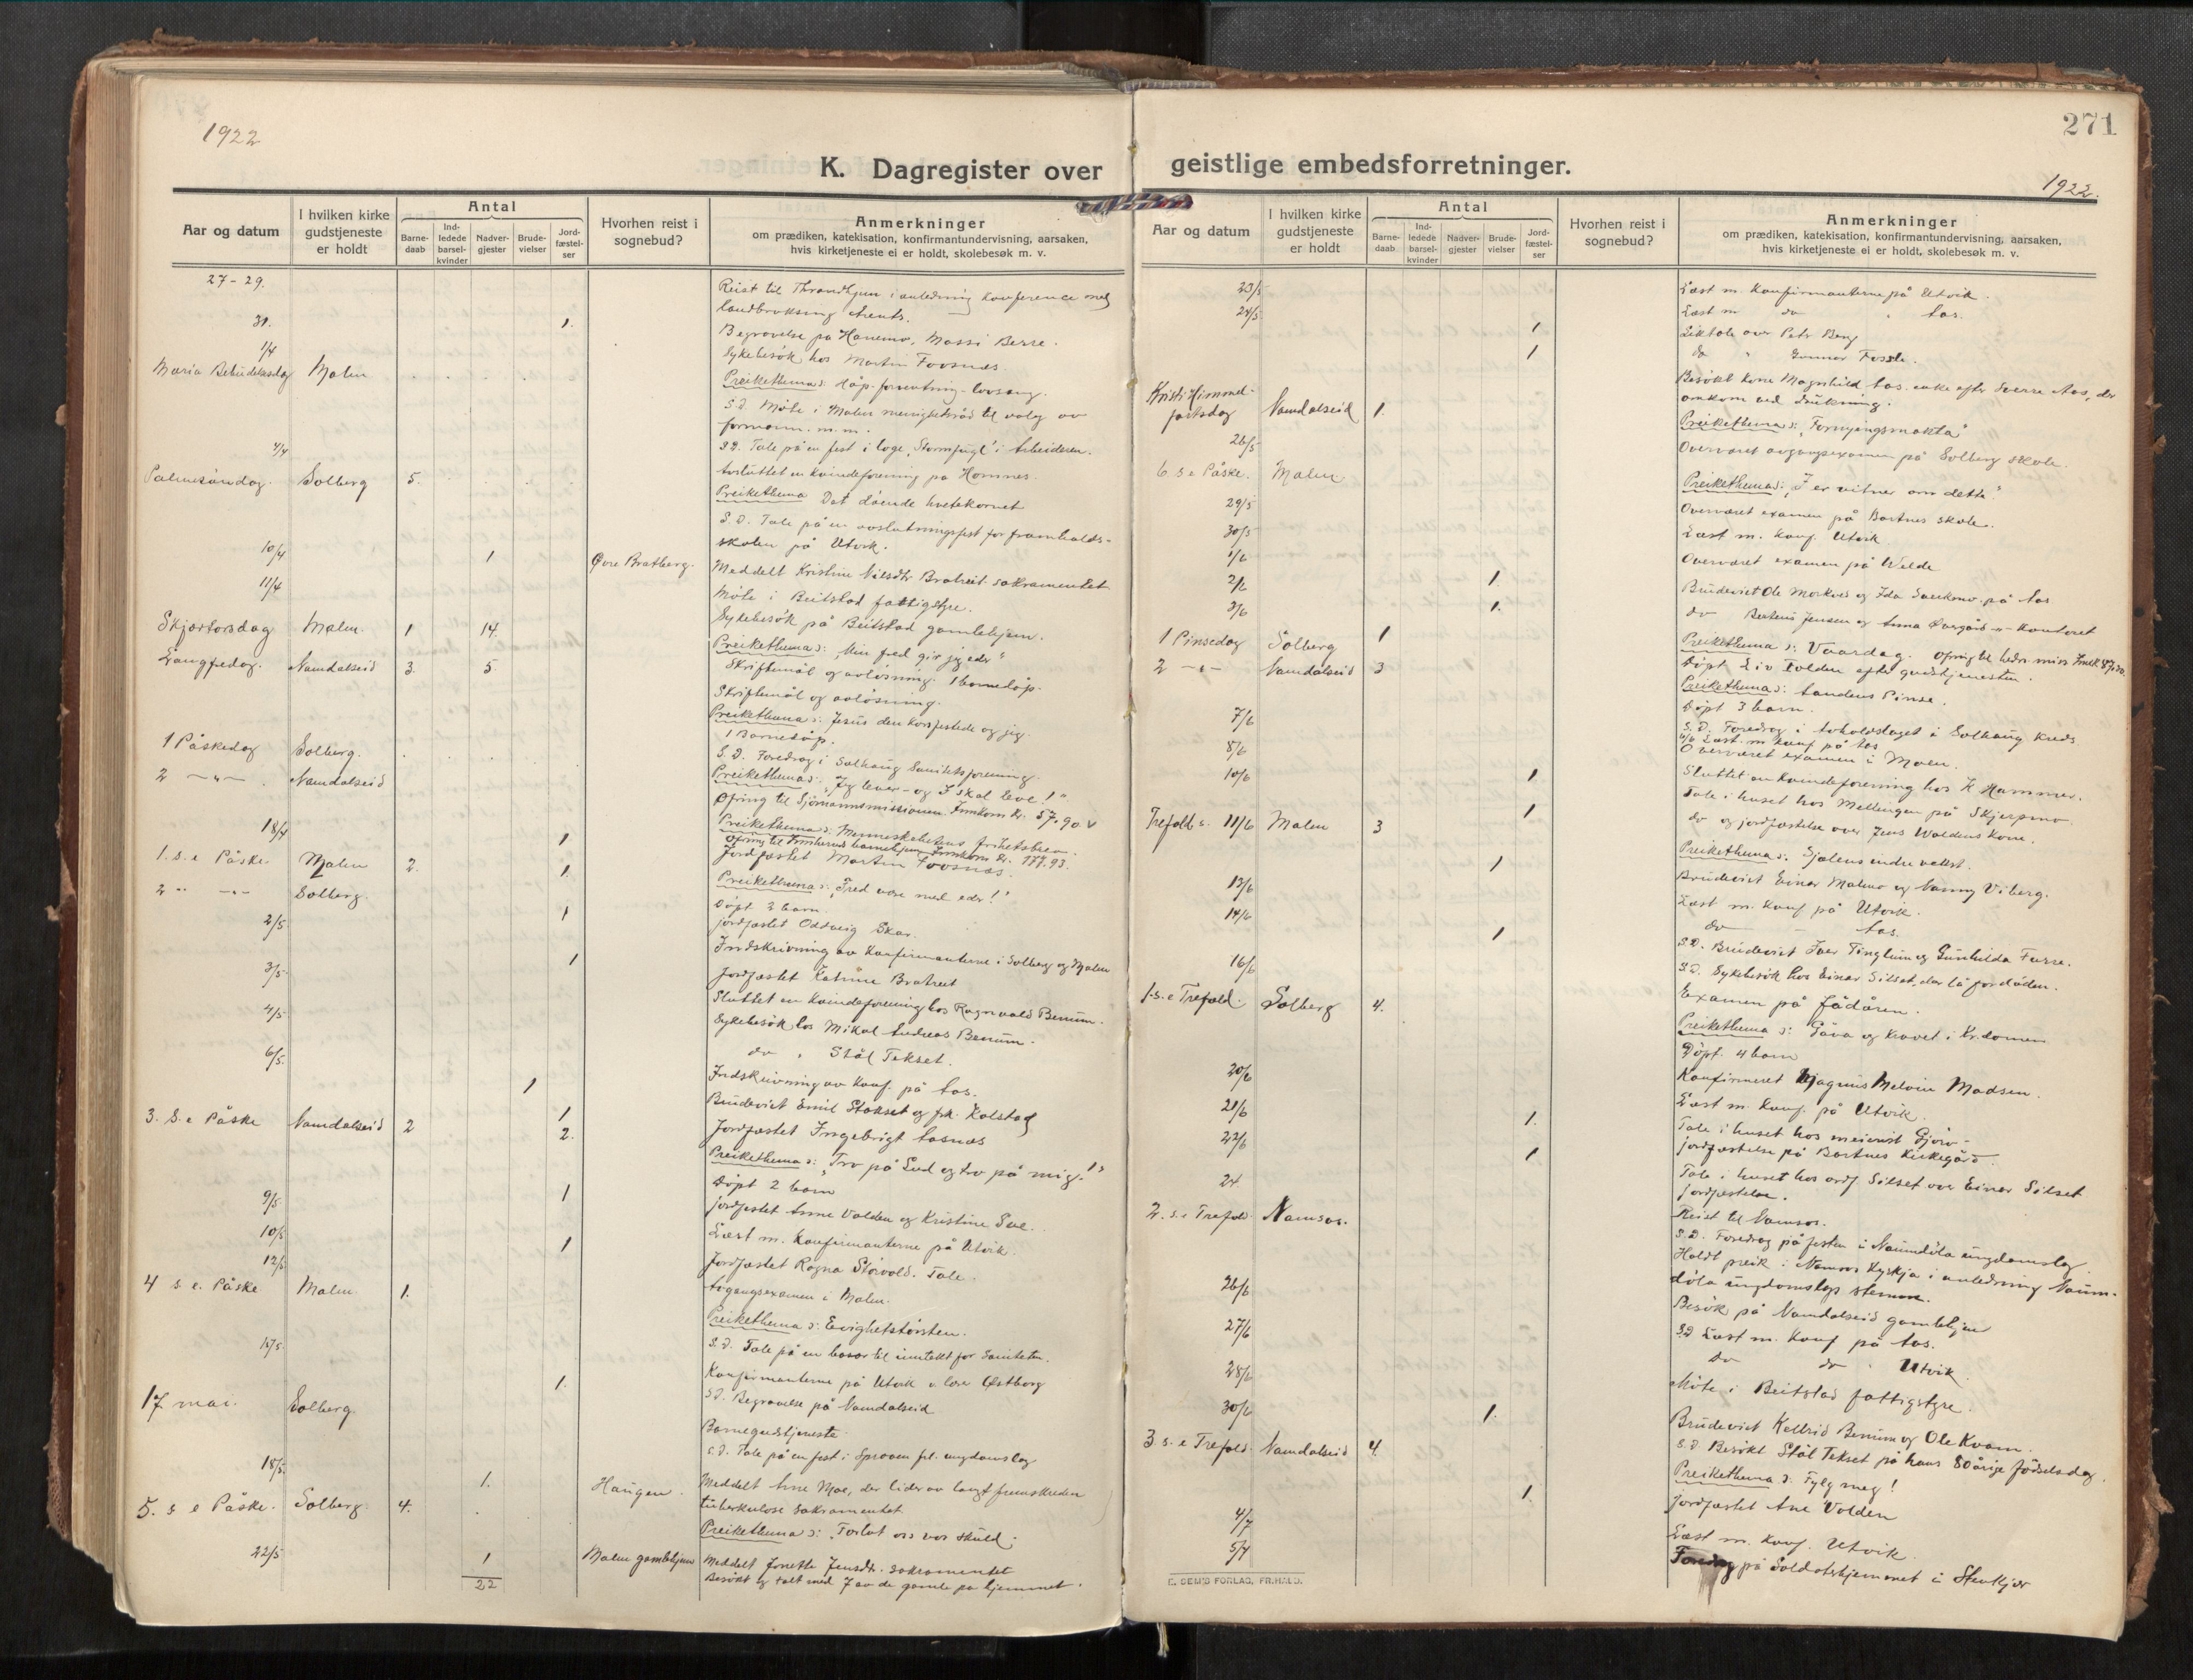 1922
K. Dagregister over
Aar og datum
I hvilken kirke gudstjeneste er holdt
Antal
Barnedaab
Indledede barselkvinder
Nadvergjester
Brudevielser
Jordfæstelser
Hvorhen reist i sognebud?
Anmerkninger
om prædiken, katekisation, konfirmantundervisning, aarsaken,
hvis kirketjeneste ei er holdt, skolebesøk m. v.
27-29. Reist til Throndhjem i anledning konference med
landbruksing
31. 1. Begravelse på Hanemo, Massi Berre.
1/4 Sykebesök hos Martin Foosnæs.
Maria Bebudelsesdag Malm Preikethema: Håp-forventning-lovsang.
S.D. Möte i Malm menighetsråd til valg av
formann. m.m.
4/4 S.D. Tale på en fest i loge "Stormfugl" i Arbeideren.
Avsluttet en kvindeforening på Homnes.
Palmesöndag Solberg 5. Preikethema Det döende hvetekornet
S.D. Tale på en avslutningsfest for framhalds-
skolen på Utvik.
10/4 1 Øvre Bratberg. Meddelt Kristine Nilsdtr Bratreit sakramentet
11/4 Möte i Beitstad fattigstyre.
Sykebesök på Beitstad gamlehjem.
Skjærtorsdag Malm. 1 14. Preikethema: "Min fred gir jeg eder"
Skriftemål og avlösning. 1 barnedåp.
Langfredag. Namdalseid 3. 5 Skriftemål og avlösning.
Preikethema: Jesus den korsfestede og jeg.
1 Barnedåp.
S.D. Foredrag i Solhaug Sanitetsforening.
1 Påskedag Solberg. Preikethema: "Jeg lever - og I skal leve!"
Ofring til Sjömannsmissionen. Innkom kr. 57.90
2 -"- Namdalseid Preikethema: Menneskehetens frihetsbrev.
Ofring til barnehjem Innkom kr. 177.93.
18/4 1 Jordfæstet Martin Foosnæs.
1. s. e Påske Malm 2. 1. Preikethema: "Fred være med eder!"
Döpt 2 barn
2 " -"- Solberg. 1 jordfæstet Oddveig Skar.
2/5 Indskrivning av konfirmanterne i Solberg og Malm
3/5 1 Jordfæstet Katrine Bratreit
Sluttet en kvindeforening hos Ragnvald Benum.
4/5 Sykebesök hos Mikal Andreas Benum.
do " Stål Tekset.
6/5. Indskrivning av konf. på Aas.
1 Brudeviet Emil Stokset og frk. Kolstad
1 Jordfæstet Ingebrigt Aasnæs
3. S. e Påske Namdalseid 2 2. Preikethema: "Tro på Gud og tro på mig!"
Döpt 2 barn
1 jordfæstet Anne Volden og Kristine Sve.
9/5 Læst m. konfirmanterne på Utvik.
10/5 1 Jordfæstet Ragna Storvold. Tale.
12/5 Avgangsexamen i Malm.
4 s. e. Påske Malm 1. Preikethema: Evighetstörsten.
S.D. Tale på en basar til inntekt for Saniteten.
15/5 Konfirmanterne på Utvik v. lærer Østborg
1. S.D. Begravelse på Namdalseid
17 mai. Solberg. Barnegudstjeneste.
S.D. Tale på en fest i Sprova frl. ungdomslag
18/5 1. Haugen. Meddelt Ane Moe, der lider av langt fremskreden
tuberkulose sakramentet.
5. s e Påske. Solberg 4. Preikethema: Forlat oss vor skuld.
22/5 1 Malm gamlehjem Meddelt Jonetta Jensdtr. sakramentet
Besökt og talt med 7 av de gamle på hjemmet.
22
271
geistlige embedsforretninger.
1922.
Aar og datum
I hvilken kirke gudstjeneste er holdt
Antal
Barnedaab
Indledede barselkvinder
Nadvergjester
Brudevielser
Jordfæstelser
Hvorhen reist i sognebud?
Anmerkninger
om prædiken, katekisation, konfirmantundervisning, aarsaken,
hvis kirketjeneste ei er holdt, skolebesøk m. v.
23/5 Læst m. konfirmanterne på Utvik.
24/5 Læst m do " Aas.
1 Liktale over Petr Berg
1 do " Gunnar Fossli.
Besökt kone Magnhild Aas. enke efter Sverre Aas, der
omkom ved drukning.
Kristi Himmelfartsdag Namdalseid 1. Preikethema: "Fornyingsmakta"
26/5 Overværet avgangsexamen på Solberg skole.
6 s e Påske. Malm Preikethema: "I er vitner om dette".
29/5 Overværet examen på Bartnes skole.
30/5 Læst m. konf. Utvik
1/6 Overværet examen på Welde
2/6 1. Brudeviet Ole Morkved og Ida på Aas
3/6 1. do Berteus Jensen og Anna -"- Kontoret
1 Pinsedag Solberg 1 Preikethema: Vaardag. Ofring til
Döpt Liv Folden efter gudstjenesten.
2 -"- Namdalseid 3 Preikethema: Aandens Pinse.
Döpt 3 barn.
S.D. Foredrag i Avholdslaget i Solhaug kreds
6/6 Læst m. konf på Aas
7/6 Overværet examen i Malm.
8/6 Sluttet en kvindeforening hos K Hammer.
10/6 1. Tale i huset hos Mellingen på Skjerpmo.
1 do og jordfæstelse over Jens Woldens kone.
Trefold. s. 11/6 Malm 3 Preikethema: Sjælens indre vekst.
1 Brudeviet Einar Malmo og Nanny Viberg.
13/6 Læst m. konf på Utvik.
14/6 do " Aas.
1 S.D. Brudeviet Iver Tinglum og Gunhilda Furre.
S.D. Sykebesök hos Einar Silset, der lå for döden.
16/6 Examen på Jådåren.
1. s. e Trefold. Solberg 4. Preikethema: Gåva og kravet i kr.domen
Döpt. 4 barn
Konfirmeret Magnus Melvin Madsen.
20/6 Læst m. konf. på Utvik.
21/6 1. Tale i huset hos meierist Gjörv-
jordfæstelse på Bartnes kirkegård.
22/6 1 Tale i huset hos ordf Silset over Einar Silset
Jordfæstelse.
24. Reist til Namsos.
S.D. Foredrag på festen i Naumdöla ungdomslag.
2. s. e Trefold. Namsos. Holdt preik i Namsos kyrkja i anledning Naum-
döla ungdomslags stemne.
26/6 Besök på Namdalseid gamlehjem
S.D Læst m. konf på Aas.
27/6 do do " Utvik
28/6 Möte i Beitstad fattigstyre.
30/6 1. Brudeviet Kellrid Benum og Ole Kvam.
S.D Besökt Stål Tekset på hans 80 årige födselsdag.
3. s. e Trefold. Namdalseid 4. Preikethema: Fylg meg!
1. jordfæstet Ane Volden
4/7 Læst m. konf. Utvik.
5/7 Foredrag på Soldaterhjemmet i Stenkjær
E. SEM'S FORLAG, FR.HALD.